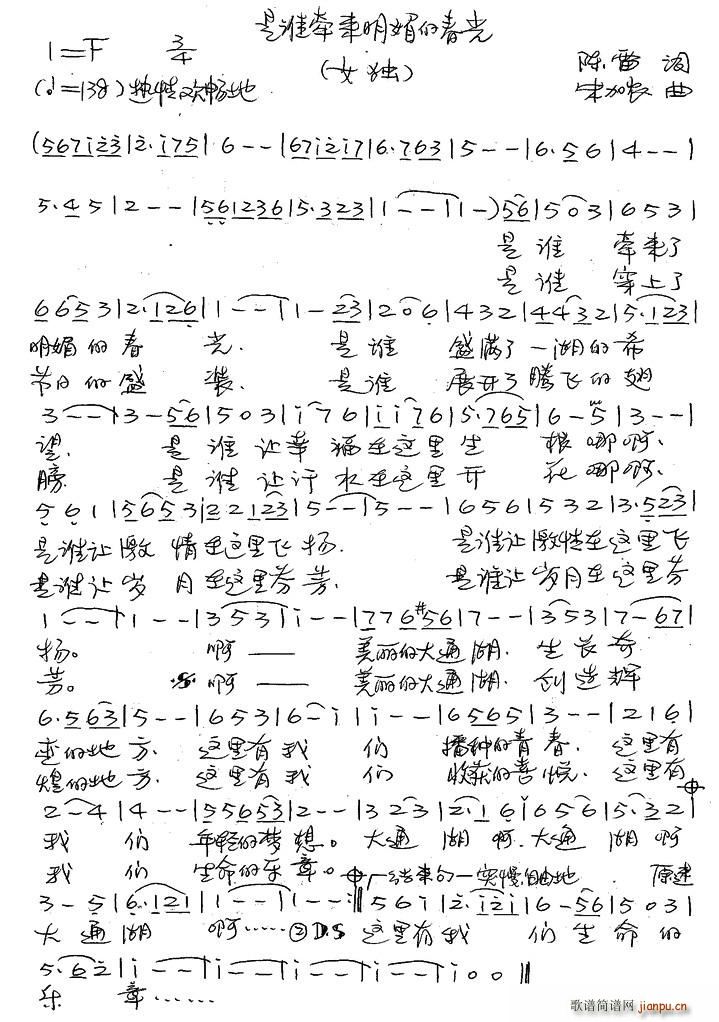 是谁牵来明媚的春光
1=F 3/4
(女独)
陈雷 词
(♩=138) 热情欢畅地
宋加农 曲
(567i23|2·i75|6--|67i2i7|6·763|5--|6·56|4--|
5·45|2--|561236|5·323|1--|1-)56|503|6531|
是谁 牵来了
是谁 穿上了
6653|2·126|1--|1-23|206|432|4432|5·123|
明媚的春 光. 是谁 盛满了一湖的希
节日的盛 装. 是谁 展开了腾飞的翅
3--|3-56|503|i76|ii76|5·765|6-5|3--|
望. 是谁让幸福在这里生 根哪啊.
膀 是谁让汗水在这里开 花哪啊.
561|5653|2123|5--|5--|656|532|3·523|
是谁让激情在这里飞扬. 是谁让激情在这里飞
是谁让岁月在这里芬芳. 是谁让岁月在这里芬
1--|1--|353|i--|776#56|7--|353|7-67|
扬。 啊—— 美丽的大通湖. 生长奇
芳。 啊—— 美丽的大通湖. 创造辉
6·563|5--|653|6-i|i--|6565|3--|216|
迹的地方. 这里有我 们 播种的青春. 这里有
煌的地方. 这里有我 们 收获的喜悦. 这里有
2-4|4--|55653|2--|323|2·16|656|5·32|
我 们 年轻的梦想。大通湖啊.大通湖啊
我 们 生命的乐章。 结束句 突慢自由地 原速
3-5|6·121|1--|1--‖56i|2·i2i|6-56|503|
大通湖 啊…… ②D.S 这里有我 们生命的
5·62|i--|i--|i--|i--|i00‖
乐 章……
歌谱简谱网
jianpu.cn